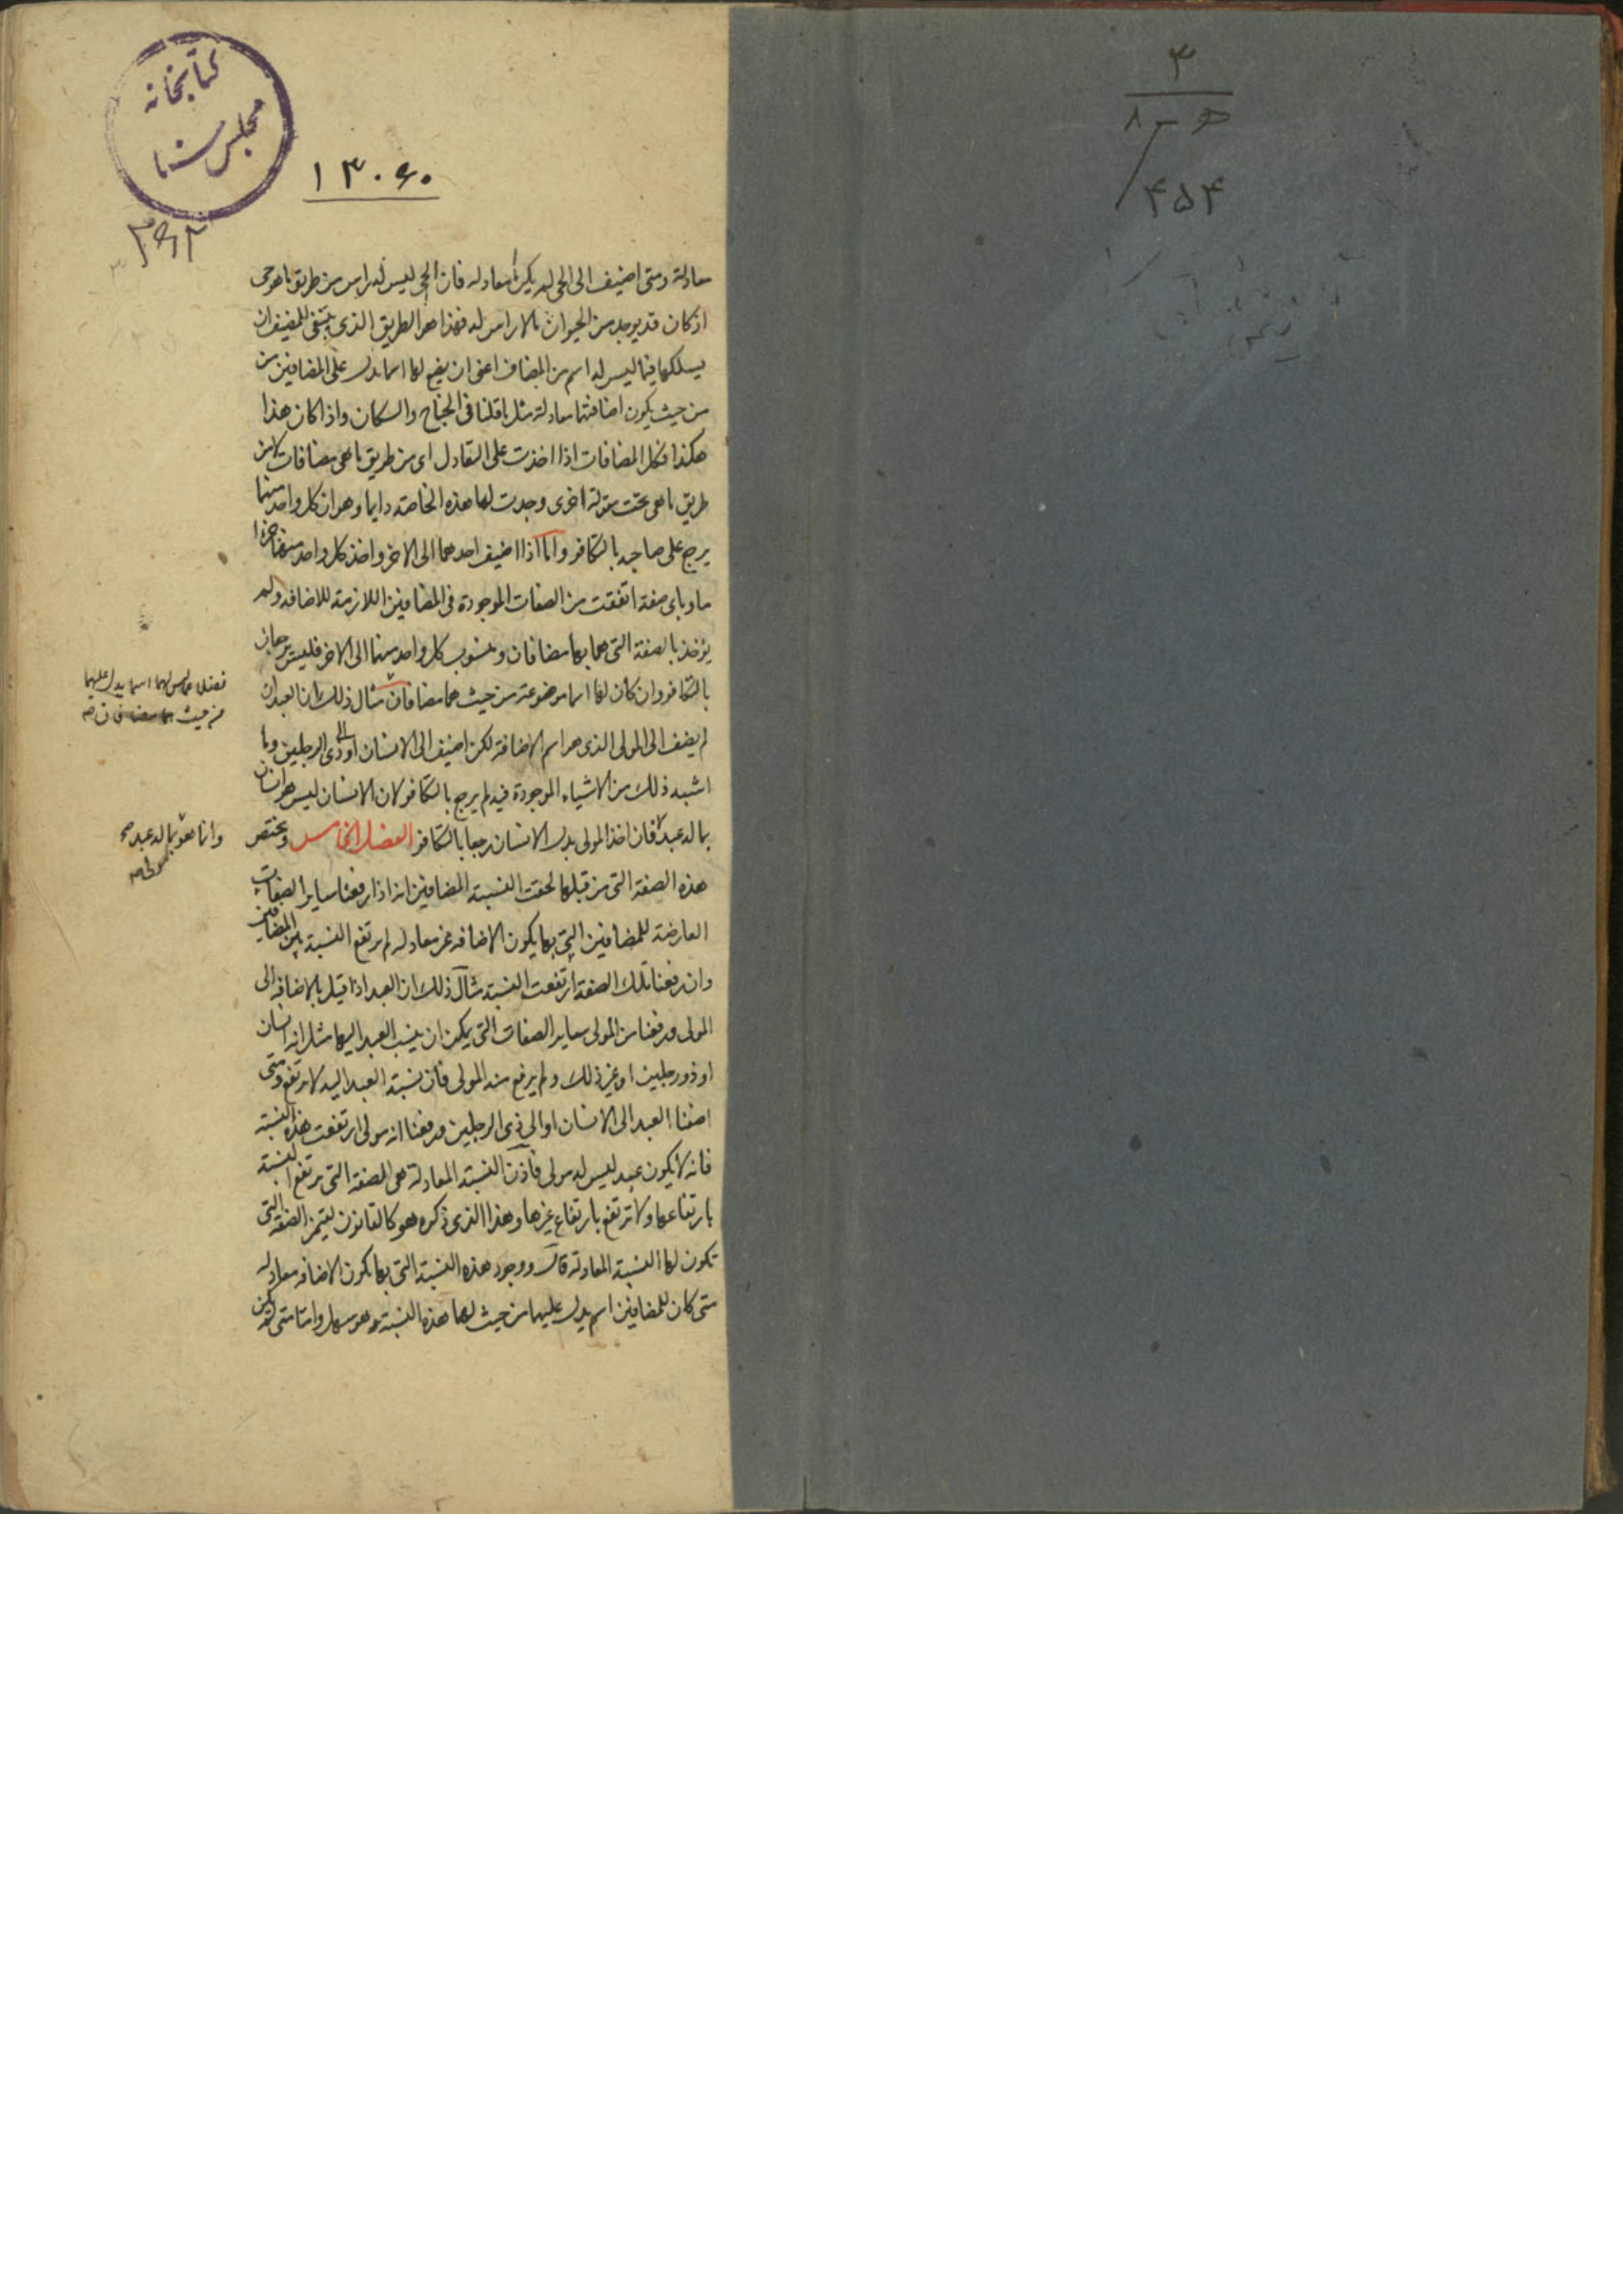 ۳
۸-ه
۴۵۴
کتابخانه
مجلس سنا
۱۳۰۶۰
معادلة ومتى اضيف الى الحى لم يكن معادله فان الحى ليس له راس من طريق ما هو حى
اذ كان قد يوجد من الحيوان مالا راس له فهذا هو الطريق الذى ينبغى للمضيف ان
يسلكها فيما ليس له اسم من المضاف اعنى ان يضع لها اسما يدل على المضافين من
من حيث يكون اضافتهما معادلة مثل ما قلنا فى الجناح والسكان واذا كان هذا
هكذا فكل المضافات اذا اخذت على التعادل اى من طريق ما هى مضافات لا من
طريق ما هى تحت مقولة اخرى وجدت لها هذه الخاصة دايما وهو ان كل واحد منهما
يرجع على صاحبه بالتكافو واما اذا اضيف احدهما الى الاخر واخذ كل واحد منهما
ما وباى صفة اتفقت من الصفات الموجودة فى المضافين اللازمة للاضافه ولم
يؤخذ بالصفة التى هما بها مضافان ومنسوب كل واحد منهما الى الاخر فليس يرجعان
بالتكافو وان كان لهما اسما موضوعة من حيث هما مضافان مثال ذلك ان العبد ان
لم يضف الى المولى الذى هو اسم الاضافة لكن اضيف الى الانسان او الى ذى الرجلين وما
اشبه ذلك من الاشياء الموجودة فيه لم يرجع بالتكافو لان الانسان ليس هو انسان
بما له عبد فان اخذ المولى بدل الانسان رجعا بالتكافو الفصل الخامس ويختص
هذه الصفة التى من قبلها لحقت النسبة المضافين انه اذا رفعنا ساير الصفات
العارضة للمضافين التى بها يكون الاضافه غير معادله لم يرتفع النسبة بين المضافين
وان رفعنا تلك الصفة ارتفعت النسبة مثال ذلك ان العبد اذا قيل بالاضافه الى
المولى ورفعنا من المولى ساير الصفات التى يمكن ان ينسب العبد اليها مثل انه انسان
او ذو رجلين او غير ذلك ولم يرفع منه المولى فان نسبة العبد اليه لا يرتفع ومتى
اضفنا العبد الى الانسان او الى ذى الرجلين ورفعنا انه مولى ارتفعت هذه النسبة
فانه لا يكون عبد ليس له مولى فاذن النسبة المعادلة هى الصفة التى يرتفع النسبة
بارتفاعها ولا ترتفع بارتفاع غيرها وهذا الذى ذكره هو كالقانون لتميز الصفة التى
تكون لها النسبة المعادلة قال ووجود هذه النسبة التى بها يكون الاضافه معادله
متى كان للمضافين اسم يدل عليهما من حيث لهما هذه النسبة هو سهل واما متى لم يكن
اسما يدل عليهما
من حيث
وانما هو بما له عبد صح
مولى